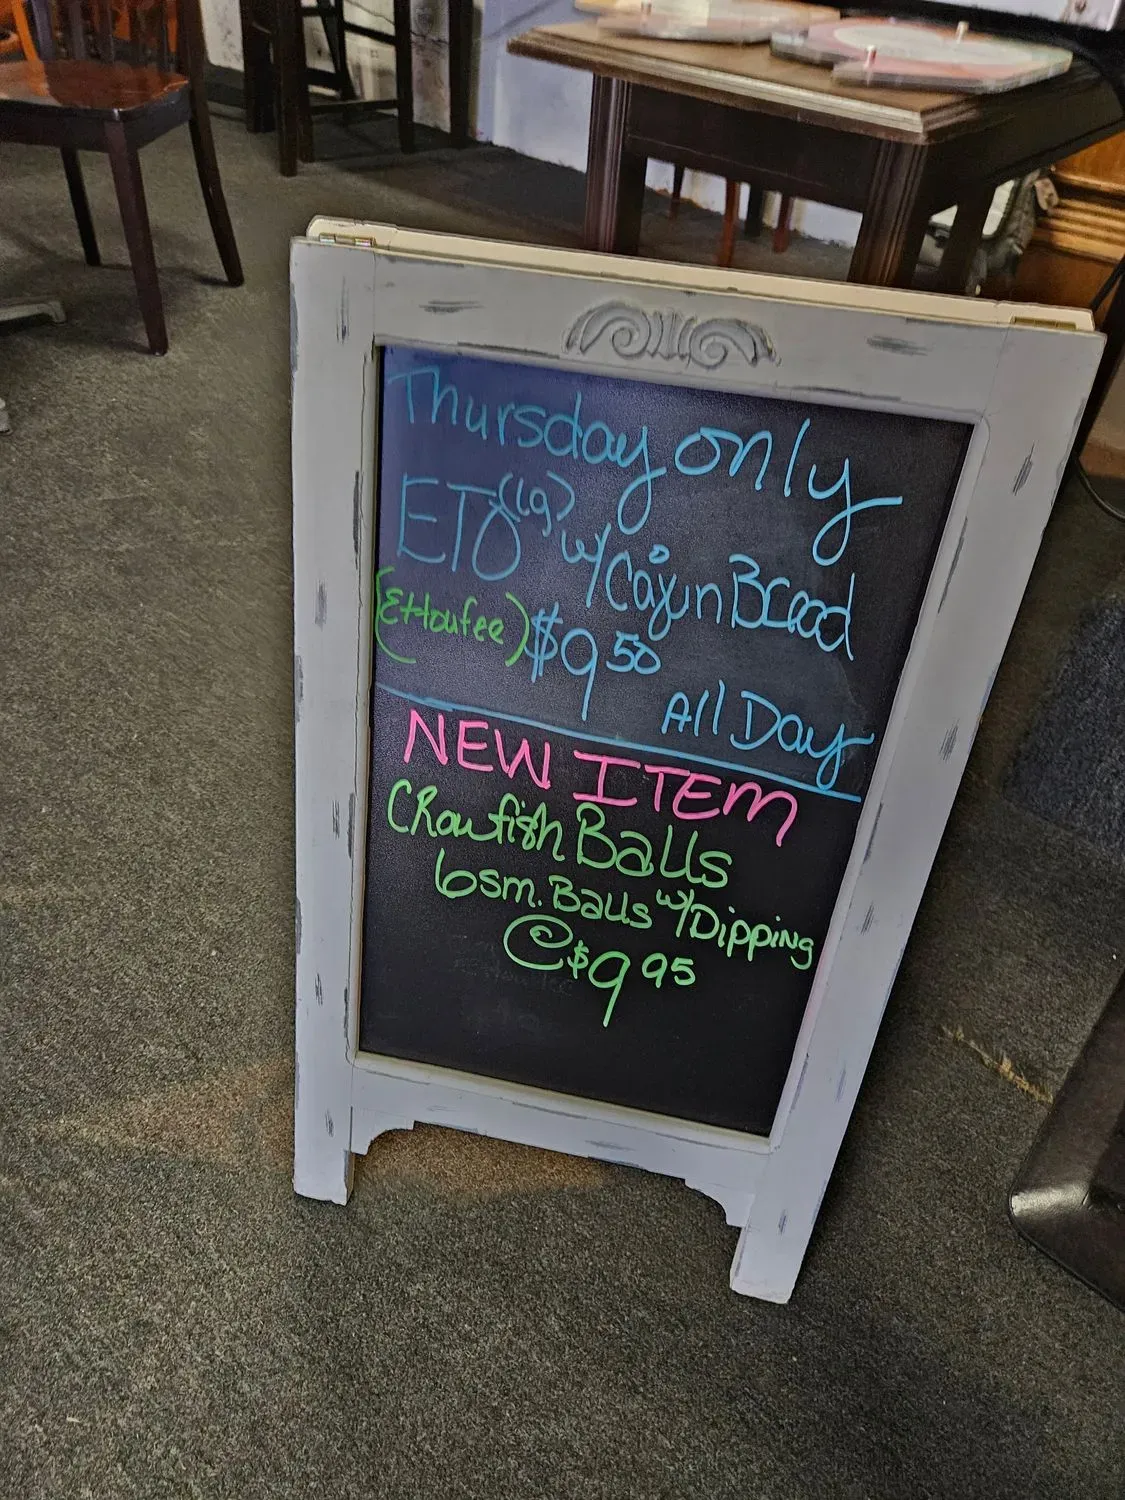 Thursday only
ETO (lg) w/ Cajun Bread
(EHoufee) $9.50
All Day
NEW ITEM
CRawfish Balls
6 sm. Balls w/ Dipping
@ $9.95